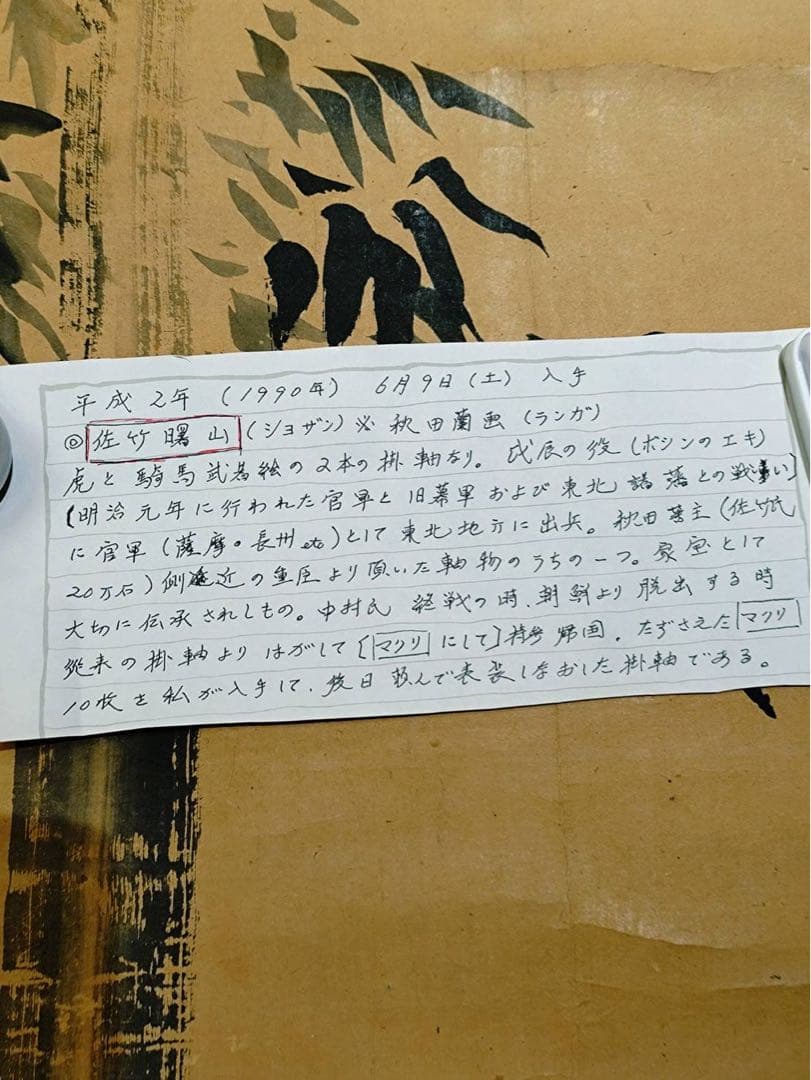 平成2年 (1990年) 6月9日(土) 入手
◎佐竹曙山(ショザン)※秋田蘭画(ランガ)
虎と騎馬武者絵の2本の掛軸なり。戊辰の役(ボシンのエキ)
(明治元年に行われた官軍と旧幕軍および東北諸藩との戦い)
に官軍(薩摩・長州etc)として東北地方に出兵。秋田藩主(佐竹氏
20万石)側近の重臣より頂いた軸物のうちの一つ。家宝として
大切に伝承されしもの。中村氏 終戦の時、朝鮮より脱出する時
従来の掛軸よりはがして[マクリにして]持参帰国。たずさえたマクリ
10枚を私が入手して、後日 で表装しなおした掛軸である。